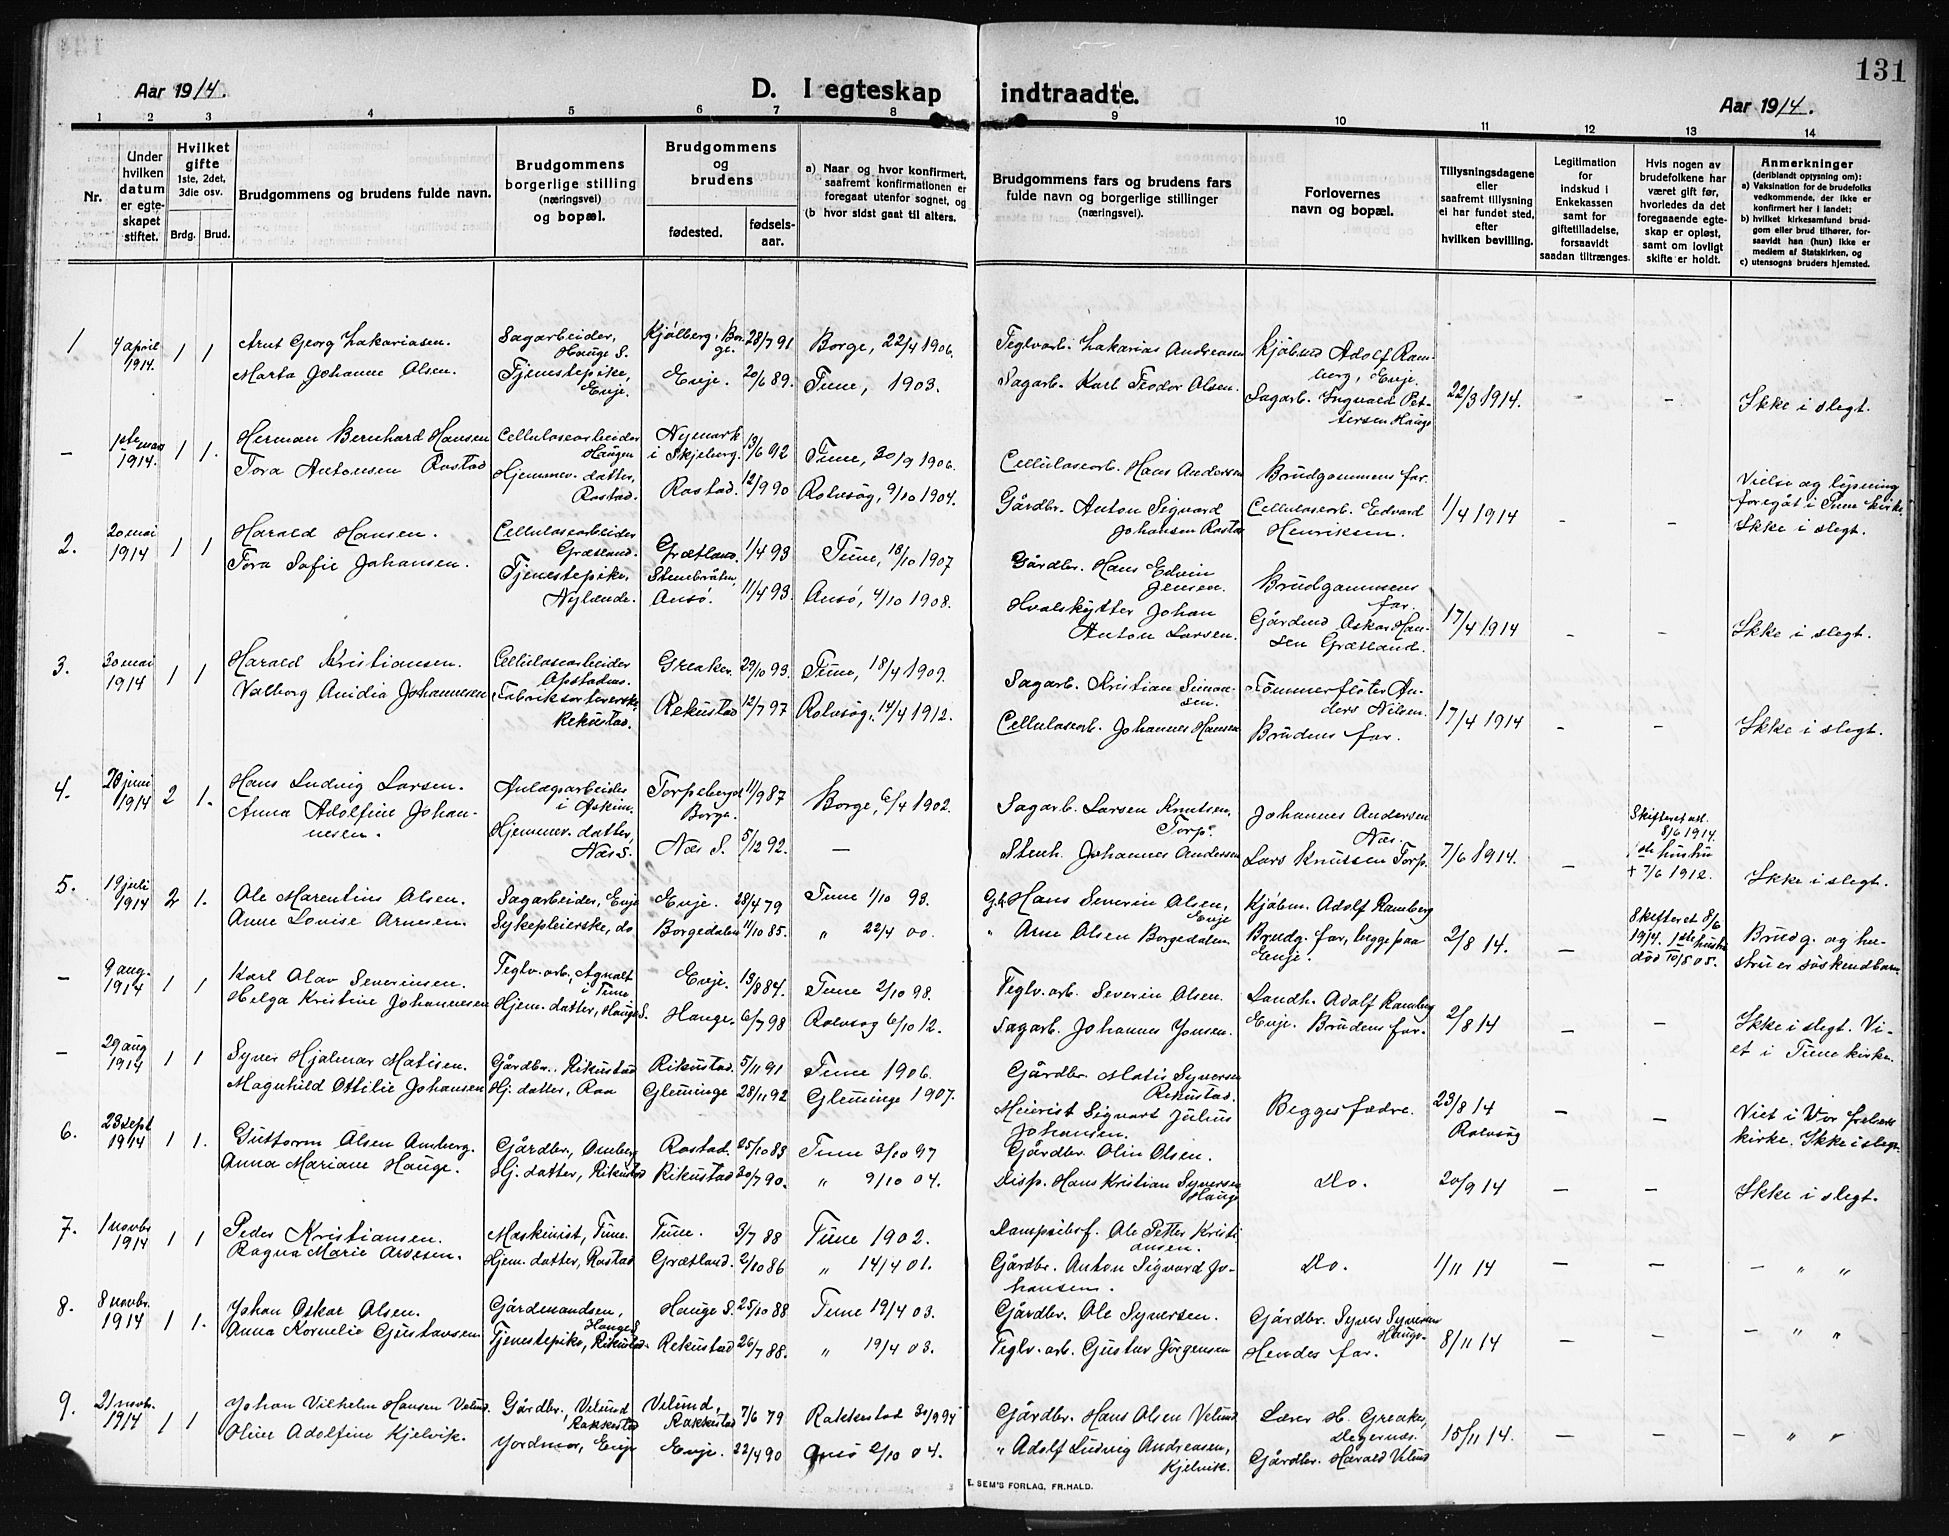 131
Aar 1914.
D. I egteskap indtraadte.
Aar 1914.
1 2 3 4 5 6 7 8 9 10 11 12 13 14
Nr.
Under hvilken datum er egteskapet stiftet.
Hvilket gifte 1ste, 2det, 3die osv.
Brdg. Brud.
Brudgommens og brudens fulde navn.
Brudgommens borgerlige stilling (næringsvei) og bopæl.
Brudgommens og brudens
fødested. fødselsaar.
a) Naar og hvor konfirmert, saafremt konfirmationen er foregaat utenfor sognet, og
(b hvor sidst gaat til alters.
Brudgommens fars og brudens fars fulde navn og borgerlige stillinger (næringsvei).
Forlovernes navn og bopæl.
Tillysningsdagene eller saafremt tillysning ei har fundet sted, efter hvilken bevilling.
Legitimation for indskud i Enkekassen samt for giftetilladelse, forsaavidt saadan tiltrænges.
Hvis nogen av brudefolkene har været gift før, hvorledes da det foregaaende egteskap er opløst, samt om lovligt skifte er holdt.
Anmerkninger (deriblandt oplysning om):
a) Vaksination for de brudefolks vedkommende, der ikke er konfirmert her i landet;
b) hvilket kirkesamfund brudgom eller brud tilhører, forsaavidt han (hun) ikke er medlem af Statskirken, og
c) utensogns bruders hjemsted.
1 4 april 1914. 1 1 Arnt Georg Zakariasen. Sagarbeider, Hauge S. Kjølberg i Borge. 28/7 91 Borge, 22/4 1906. Teglvarb. Zakarias Andreasen Kjøbmd Adolf Ramberg, Evje.
Marta Johanne Olsen. Tjenestepike, Evje. Evje. 20/6 89. Tune, 1903. Sagarb. Karl Teodor Olsen. Sagarb. Ingvald Pettersen Hauge 22/3 1914. - - Ikke i slegt.
- 1ste mai 1914. 1 1. Herman Bernhard Hansen Cellulosearbeider Haugen Nymark i Skjeberg. 13/6 92 Tune, 30/9 1906. Cellulosearb. Hans Andersen Brudgommens far.
Tora Antonsen Rostad Hjemmev. datter, Rostad. Rostad. 12/9 90 Rolvsøg, 9/10 1904. Gårdbr. Anton Sigvard Johansen Rostad Cellulosearb. Edvard Henriksen. 1/4 1914 - - Vielse og lysning foregåt i Tune kirke. Ikke i slegt.
2. 20 mai 1914 1 1 Harald Hansen. Cellulosearbeider Grætland. Grætland. 1/4 93 Tune, 18/10 1907 Gårdbr. Hans Edvin Jensen. Brudgommens far.
Tora Sofie Johansen. Tjenestepike, Nylende. Stenbråten, Onsø. 11/4 93. Onsø, 4/10 1908. Hvalskytter Johan Anton Larsen. Gårdmd Oskar Hansen Grætland. 17/4 1914 - - Ikke i slegt.
3. 30 mai 1914 1 1 Harald Kristiansen. Cellulosearbeider Opstadms. Greaker. 29/10 93. Tune, 18/4 1909. Sagarb. Kristian Simonsen. Tømmerfløter Anders Nilsen.
Valborg Anidia Johannesen Fabriksarbeiderske Rekustad. Rekustad 12/7 97 Rolvsøg, 14/4 1912. Cellulosearb. Johannes Hansen Brudens far. 17/4 1914 - - Ikke i slegt.
4. 28 juni 1914 2 1. Hans Ludvig Larsen. Anlægsarbeider i Askim. Torpeberget Borge. 11/9 87 Borge, 6/4 1902. Sagarb. Larsen Knutsen, Torp. Johannes Andersen Næs.
Anna Adolfine Johannesen. Hjemmev. datter, Næs S. Næs S. 5/12 92. - Stenh. Johannes Andersen Lars Knutsen Torp. 7/6 1914. - Skifteret att. 8/6 1914. 1ste hustru + 7/6 1912. Ikke i slegt.
5. 19 juli 1914 2 1. Ole Marentius Olsen. Sagarbeider, Evje Evje. 28/4 79 Tune 1/10 93. Gb. Hans Severin Olsen, Evje Kjøbm. Adolf Ramberg
Anne Lovise Arnesen. Sykepleierske, do Borgedalen 11/10 85. " 22/4 00. " Arne Olsen Borgedalen. Brudg. far, begge paa Evje. 2/8 14. - Skifteret 8/6 1914. 1ste hustru død 10/5 05. Brudg. og hustru er søskendbarn
- 9 aug. 1914 1 1 Karl Olav Severinsen. Teglv. arb. Agnalt i Tune Evje. 13/8 84. Tune 2/10 98. Teglv. arb. Severin Olsen. Landh. Adolf Ramberg
Helga Kristine Johannesen Hjem. datter, Hauge S. Hauge. 6/7 98 Rolvsøg 6/10 12. Sagarb. Johannes Jonsen. Evje. Brudens far. 2/8 14 - - Ikke i slegt. Viet i Tune kirke.
- 29 aug 1914 1 1 Syver Hjalmar Matisen. Gårdbr. Rikustad Rikustad. 5/11 91 Tune 1906. Gårdbr. Matis Syversen Rekustad.
Magnhild Ottilie Johansen Hj. datter, Raa Glemminge 28/11 92 Glemminge 1907. Meierist Sigvart Julius Johansen. Begges fædre. 23/8 14 Rolvsøg - - Viet i Vor frelsers kirke. Ikke i slegt.
6. 23 sept 1914 1 1. Guttorm Olsen Omberg. Gårdbr, Omberg Rostad. 25/10 83 Tune 3/10 97 Gårdbr. Olin Olsen.
Anna Mariane Hauge. Hj. datter, Rikustad Rikustad 30/7 90. " 9/10 04. Disp. Hans Kristian Syversen Hauge Do. 20/9 14 - - Ikke i slegt.
7. 1 novbr 1914 1 1 Peder Kristiansen. Maskinist, Tune. Tune. 3/7 88 Tune 1902. Dampsibsf. Ole Petter Kristiansen.
Ragna Marie Arvesen. Hjem. datter, Rostad Grætland. 2/10 86 " 14/4 01. Gårdbr. Anton Sigvard Johansen. Do. 1/11 14 - - - " "
8. 8 novbr. 1914 1 1. Johan Oskar Olsen. Gårdmandsen, Hauge S Hauge S. 25/10 88 Tune 19/4 03. Gårdbr. Ole Syversen. Gårdbr. Syver Syversen Hauge.
Anna Kornelie Gustavsen Tjenestepike, Rikustad. Rekustad 26/7 88. " 19/4 03. Teglv. arb. Gustav Jørgensen Hendes far. 8/11 14 - - - " "
9. 21 novb. 1914 1 1 Johan Vilhelm Hansen Velund. Gårdbr, Velund Rakkestad Velund, Rakkestad 7/6 79 Rakkestad 30/9 94 Gårdbr. Hans Olsen Velund Lærer H. Greaker, Degernæs.
Oline Adolfine Kjelvik. Jordmor, Evje Evje. 22/4 90 Onsø 2/10 04. " Adolf Ludvig Andreasen, Kjelvik. Gårdbr. Harald Velund 15/11 14. - - - " "
E. SEM'S FORLAG, FR.HALD.